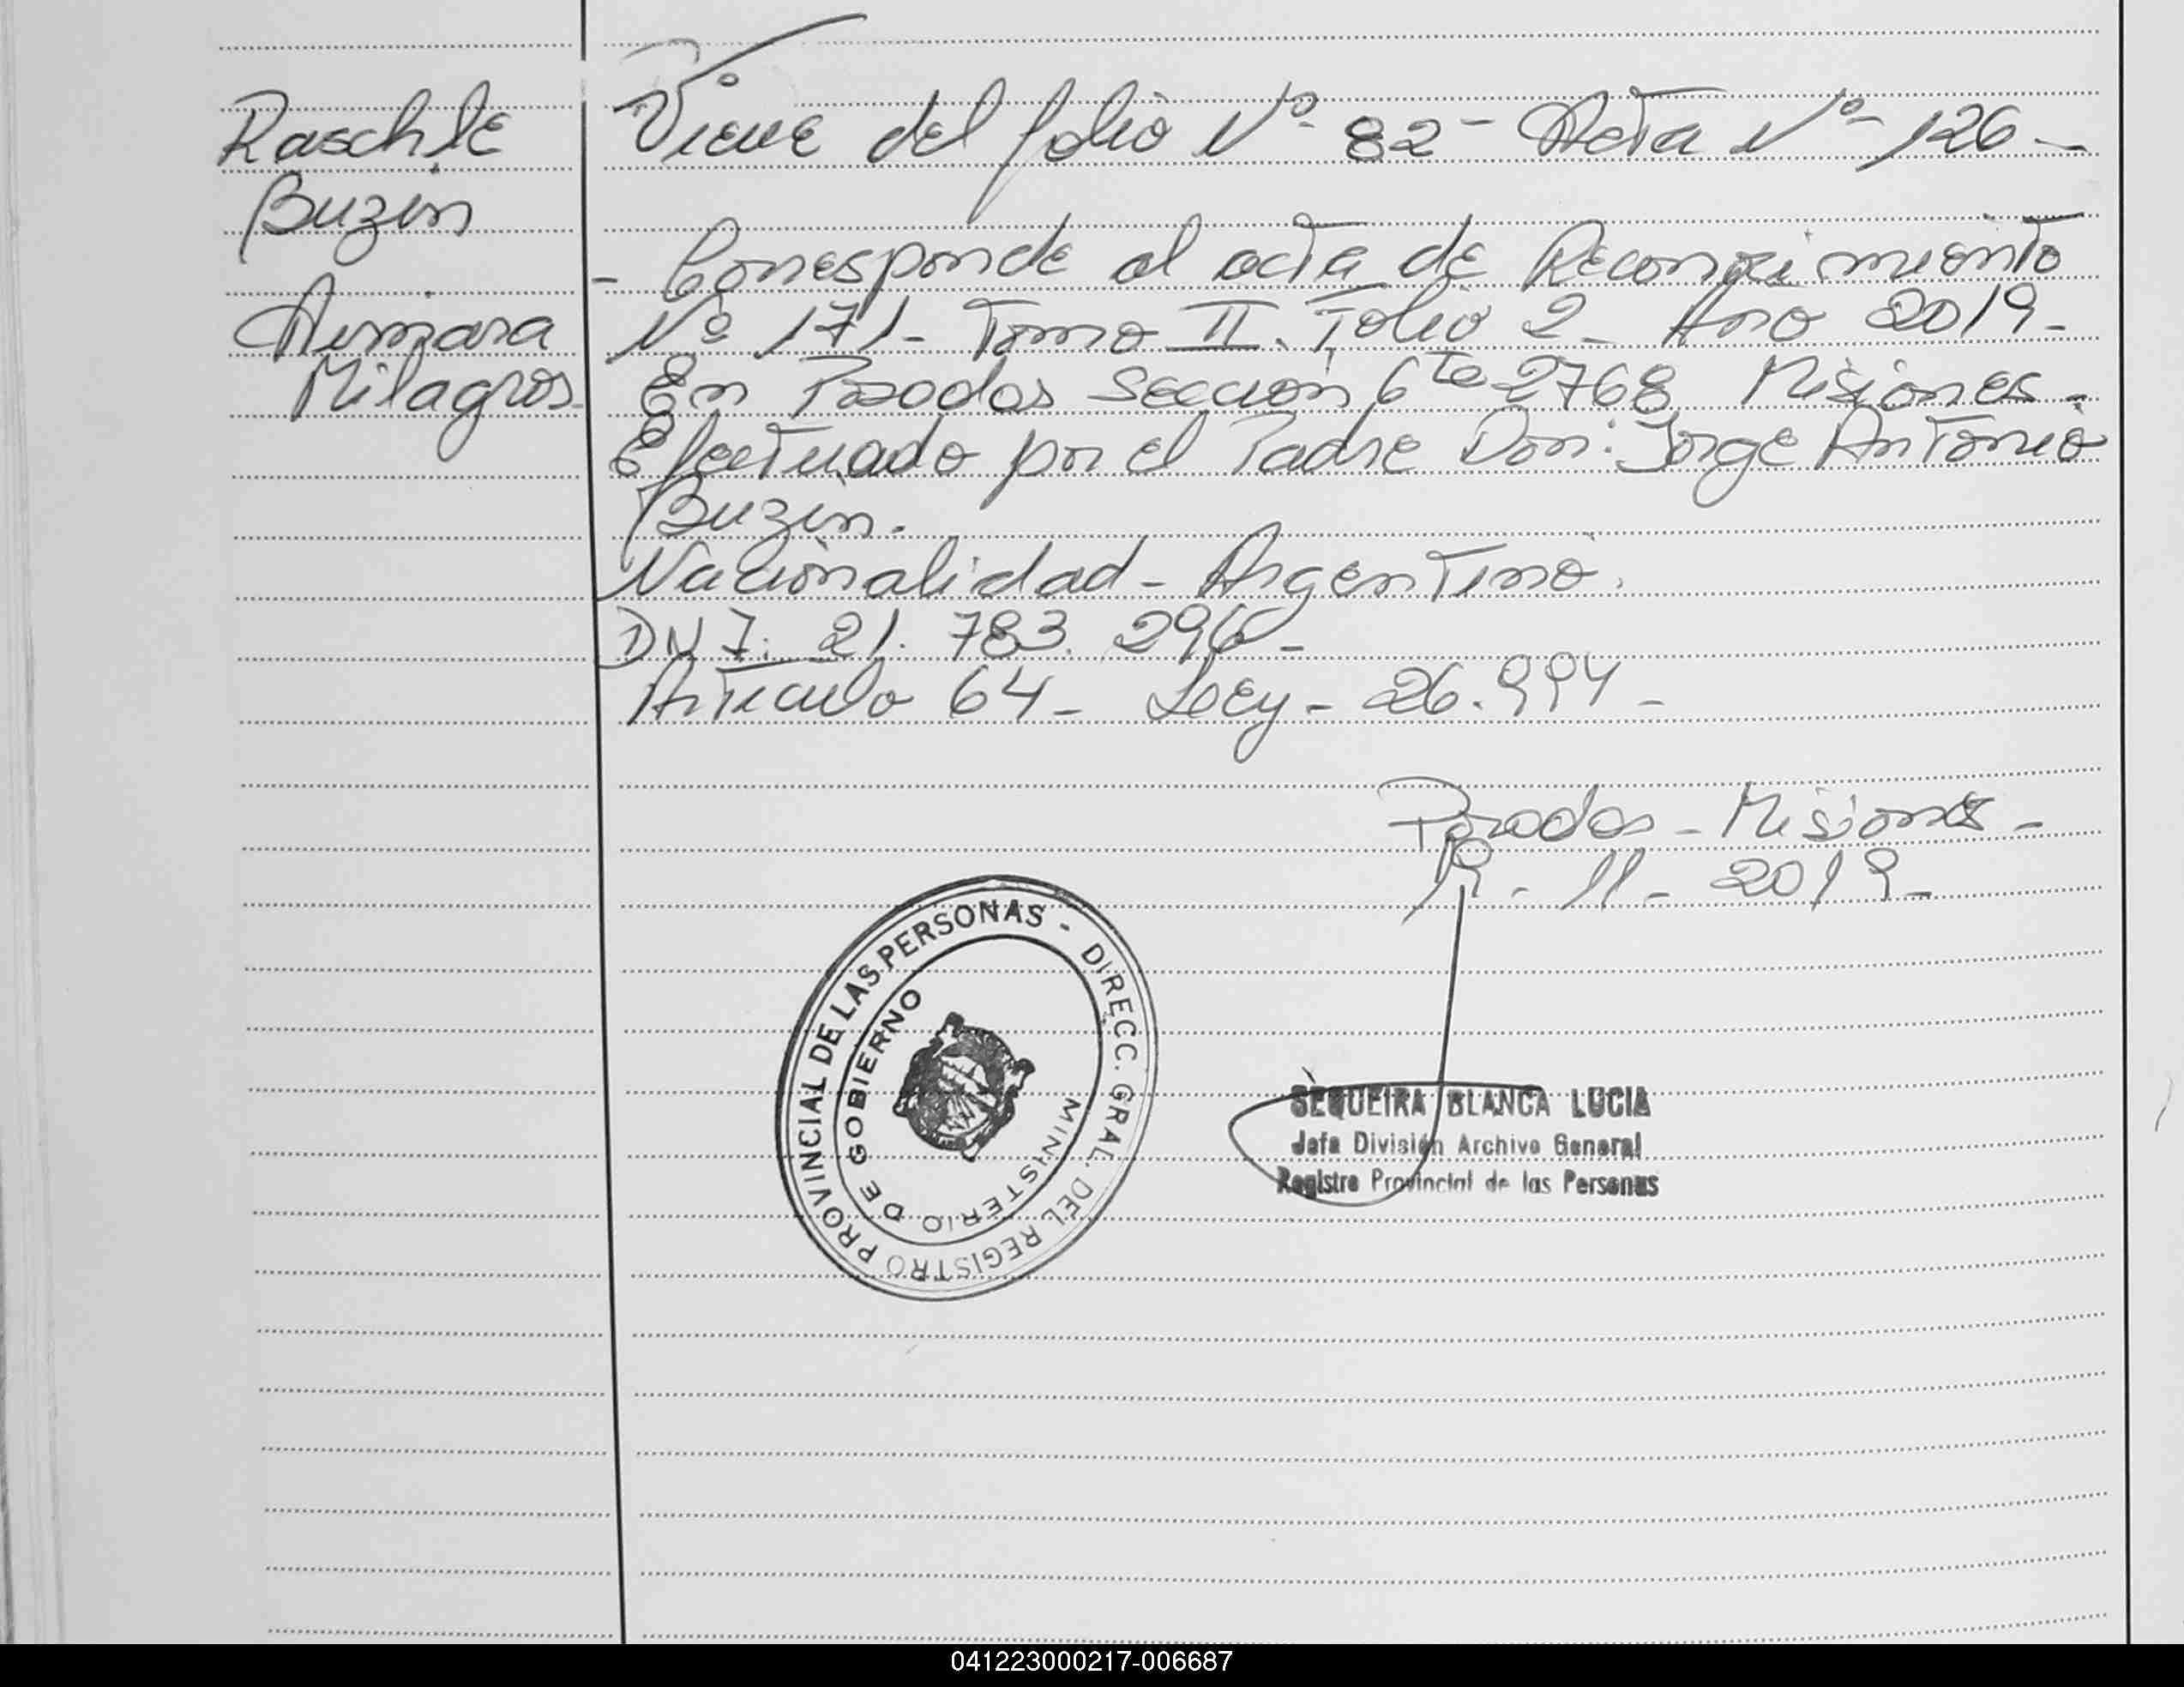 Raschle
Buzin
Aimara
Milagros
Viene del folio Nº 82 - Acta Nº 126 -
- Corresponde al acta de Reconocimiento
Nº 171 - Tomo II. Folio 2 - Año 2019 -
En Posadas Sección 6ta 2768 Misiones -
Efectuado por el Padre Don: Jorge Antonio
Buzin.
Nacionalidad - Argentino.
DNI: 21. 783. 296 -
Artículo 64 - Ley - 26.994 -
Posadas - Misiones -
19 - 11 - 2019 -
DIRECC. GRAL. DEL REGISTRO PROVINCIAL DE LAS PERSONAS -
MINISTERIO DE GOBIERNO
SEQUEIRA BLANCA LUCIA
Jefa División Archivo General
Registro Provincial de las Personas
041223000217-006687